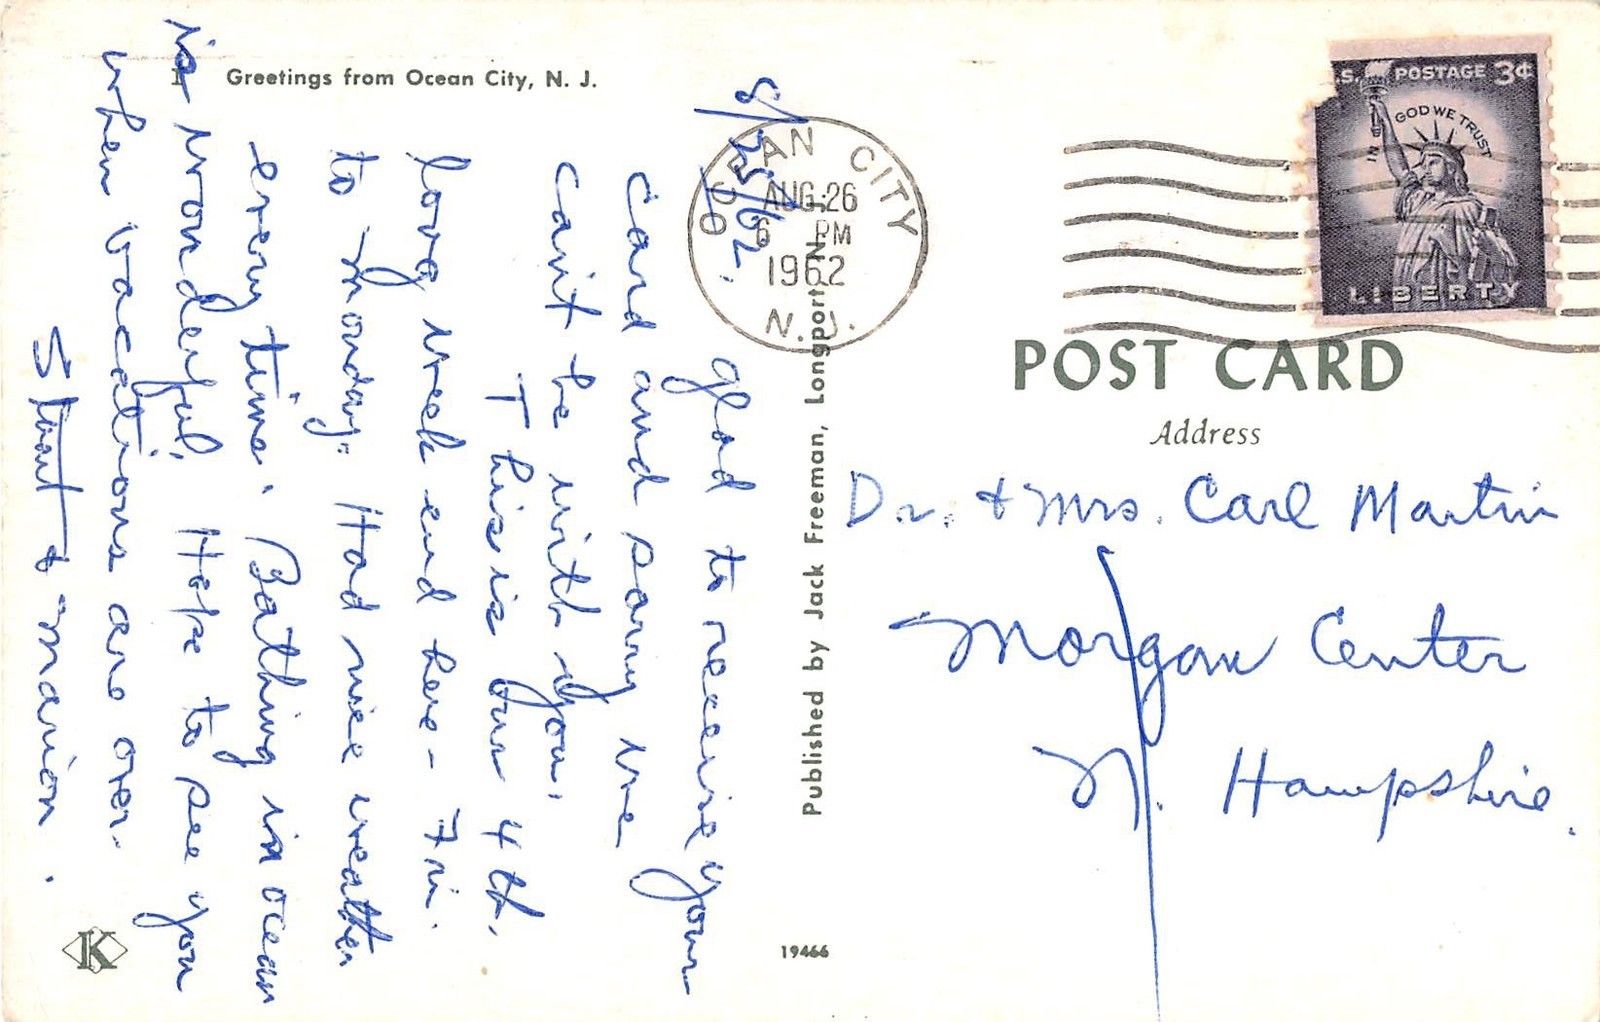 Greetings from Ocean City, N. J.
8/25/62.
glad to receive your
card and sorry we
can't be with you.
This is our 4th.
long week end here - Fri.
to Monday. Had nice weather
every time. Bathing in ocean
is wonderful. Hope to see you
when vacations are over.
Stuart & Marion.
K
19466
Published by Jack Freeman, Longport, N. J.
OCEAN CITY
AUG 26
6 PM
1962
N. J.
U.S. POSTAGE 3¢
IN GOD WE TRUST
LIBERTY
POST CARD
Address
Dr. & Mrs. Carl Martin
Morgan Center
N. Hampshire.